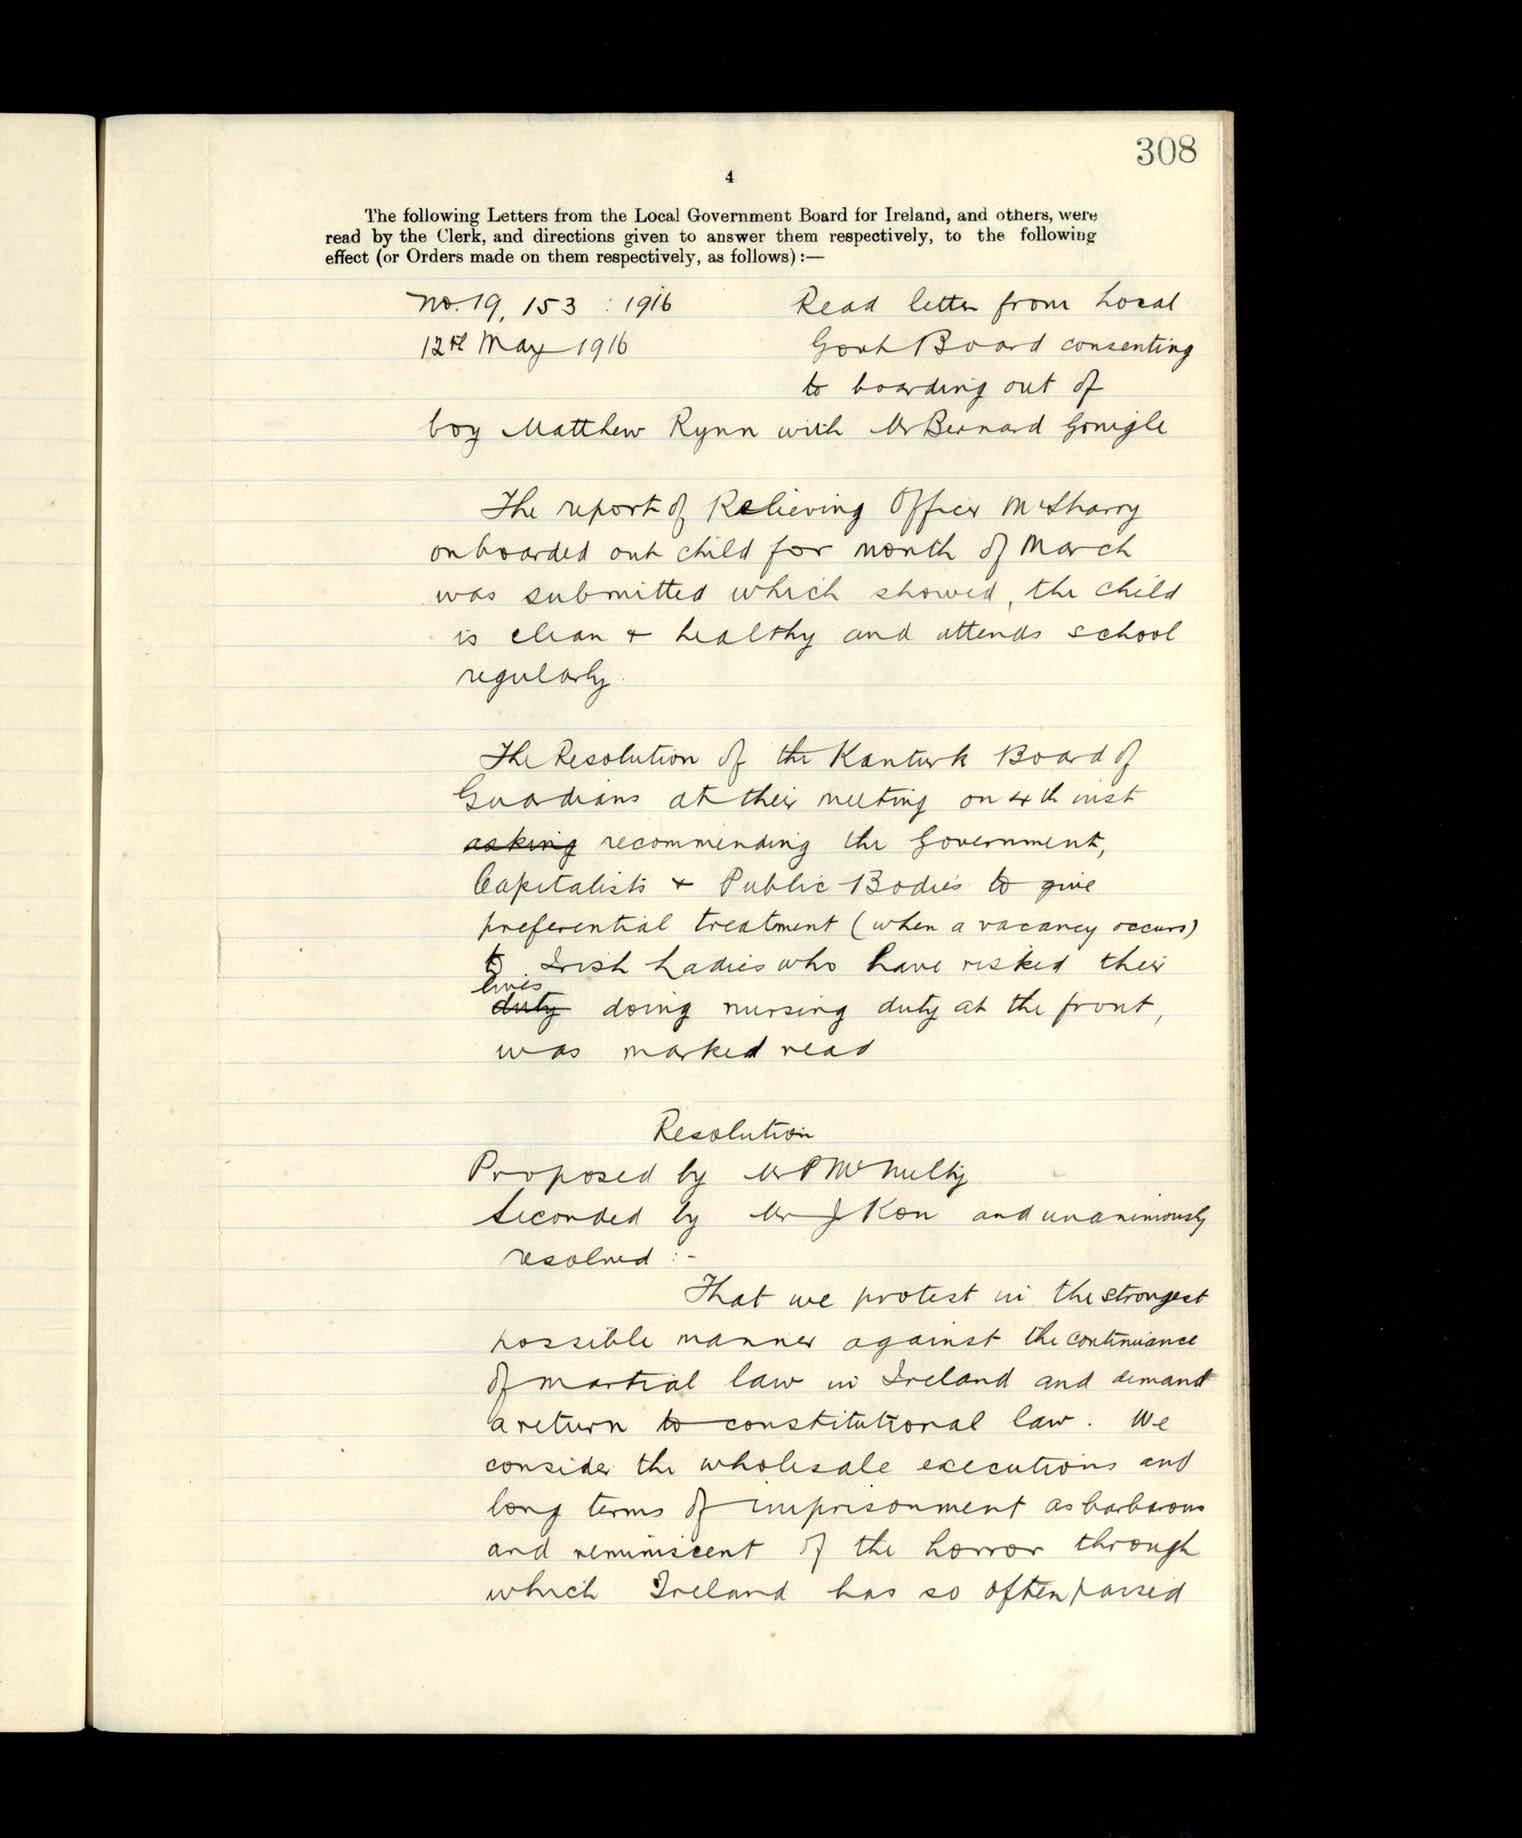 308
4
The following Letters from the Local Government Board for Ireland, and others, were
read by the Clerk, and directions given to answer them respectively, to the following
effect (or Orders made on them respectively, as follows) :—
No. 19,153 : 1916 Read letter from Local
12th May 1916 Govt Board consenting
to boarding out of
boy Matthew Rynn with Mr Bernard Gonigle
The report of Relieving Officer McSharry
on boarded out child for month of March
was submitted which showed, the child
is clean + healthy and attends school
regularly.
The Resolution of the Kanturk Board of
Guardians at their meeting on 4th inst
asking recommending the Government,
Capitalists + Public Bodies to give
preferential treatment (when a vacancy occurs)
to Irish Ladies who have risked their
lives
duty doing nursing duty at the front,
was marked read
Resolution
Proposed by Mr P McNulty
Seconded by Mr J Keon and unanimously
resolved :-
That we protest in the strongest
possible manner against the continuance
of martial law in Ireland and demand
a return to constitutional law. We
consider the wholesale executions and
long terms of imprisonment as barbarous
and reminiscent of the horror through
which Ireland has so often passed